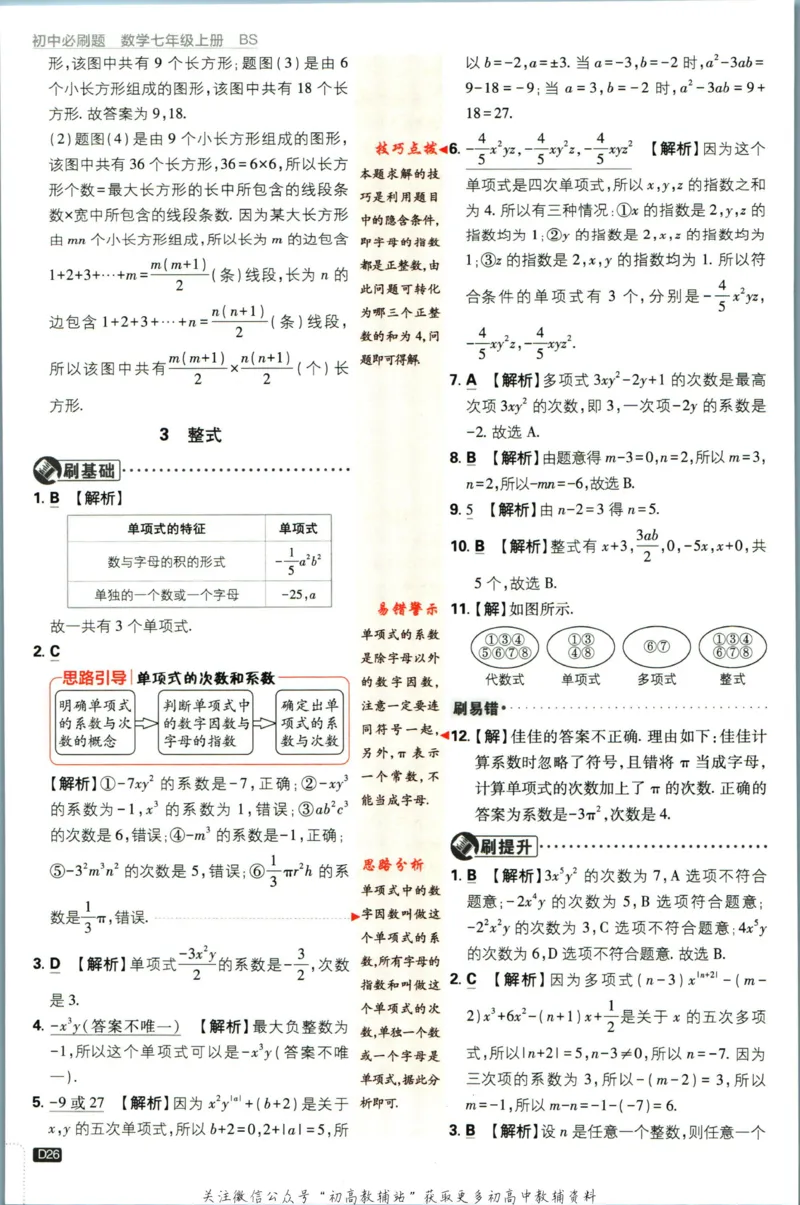 初中必刷题 数学七年级上册 BS
形,该图中共有 9 个长方形;题图(3)是由 6
个小长方形组成的图形,该图中共有 18 个长
方形. 故答案为 9,18.
(2)题图(4)是由 9 个小长方形组成的图形,
该图中共有 36 个长方形,36=6×6,所以长方
形个数=最大长方形的长中所包含的线段条
数×宽中所包含的线段条数. 因为某大长方形
由 mn 个小长方形组成,所以长为 m 的边包含
1+2+3+⋯+m=m(m+1)/2(条)线段,长为 n 的
边包含 1+2+3+⋯+n=n(n+1)/2(条)线段,
所以该图中共有m(m+1)/2×n(n+1)/2(个)长
方形.
3 整式
刷基础
1. B 【解析】
单项式的特征 单项式
数与字母的积的形式 -1/5a²b²
单独的一个数或一个字母 -25,a
故一共有 3 个单项式.
2. C
思路引导 单项式的次数和系数
明确单项式
的系数与次
数的概念
判断单项式中
的数字因数与
字母的指数
确定出单
项式的系
数与次数
【解析】①-7xy² 的系数是-7,正确;②-xy³
的系数为-1,x³ 的系数为 1,错误;③ab²c³
的次数是 6,错误;④-m³ 的系数是-1,正确;
⑤-3²m³n² 的次数是 5,错误;⑥1/3πr²h 的系
数是1/3π,错误.
3. D 【解析】单项式-3x²y/2的系数是-3/2,次数
是 3.
4. -x³y(答案不唯一) 【解析】最大负整数为
-1,所以这个单项式可以是-x³y(答案不唯
一).
5. -9 或 27 【解析】因为 x²y|a|+(b+2)是关于
x,y 的五次单项式,所以 b+2=0,2+|a|=5,所
D26
技巧点拨
本题求解的技
巧是利用题目
中的隐含条件,
即字母的指数
都是正整数,由
此问题可转化
为哪三个正整
数的和为 4,问
题即可得解.
易错警示
单项式的系数
是除字母以外
的数字因数,
注意一定要连
同符号一起,
另外,π 表示
一个常数,不
能当成字母.
思路分析
单项式中的数
字因数叫做这
个单项式的系
数,所有字母的
指数和叫做这
个单项式的次
数,单独一个数
或一个字母是
单项式,据此分
析即可.
以 b=-2,a=±3. 当 a=-3,b=-2 时,a²-3ab=
9-18=-9;当 a=3,b=-2 时,a²-3ab=9+
18=27.
6. -4/5x²yz,-4/5xy²z,-4/5xyz² 【解析】因为这个
单项式是四次单项式,所以 x,y,z 的指数之和
为 4. 所以有三种情况:①x 的指数是 2,y,z 的
指数均为 1;②y 的指数是 2,x,z 的指数均为
1;③z 的指数是 2,x,y 的指数均为 1. 所以符
合条件的单项式有 3 个,分别是-4/5x²yz,
-4/5xy²z,-4/5xyz².
7. A 【解析】多项式 3xy²-2y+1 的次数是最高
次项 3xy² 的次数,即 3,一次项-2y 的系数是
-2. 故选 A.
8. B 【解析】由题意得 m-3=0,n=2,所以 m=3,
n=2,所以-mn=-6,故选 B.
9. 5 【解析】由 n-2=3 得 n=5.
10. B 【解析】整式有 x+3,3ab/2,0,-5x,x+0,共
5 个,故选 B.
11. 【解】如图所示.
①③④ ①③ ⑥⑦ ①③④
⑤⑥⑦⑧ ④⑧ ⑥⑦⑧
代数式 单项式 多项式 整式
刷易错
12. 【解】佳佳的答案不正确. 理由如下:佳佳计
算系数时忽略了符号,且错将 π 当成字母,
计算单项式的次数加上了 π 的次数. 正确的
答案为系数是-3π²,次数是 4.
刷提升
1. B 【解析】3x⁵y² 的次数为 7,A 选项不符合
题意;-2x⁴y 的次数为 5,B 选项符合题意;
-2²x²y 的次数为 3,C 选项不符合题意;4x⁵y
的次数为 6,D 选项不符合题意. 故选 B.
2. C 【解析】因为多项式(n-3)x|n+2|-(m-
2)x³+6x²-(n+1)x+1/2是关于 x 的五次多项
式,所以|n+2|=5,n-3≠0,所以 n=-7. 因为
三次项的系数为 3,所以-(m-2)=3,所以
m=-1,所以 m-n=-1-(-7)=6.
3. B 【解析】设 n 是任意一个整数,则任意一个
关注微信公众号“初高教辅站”获取更多初高中教辅资料